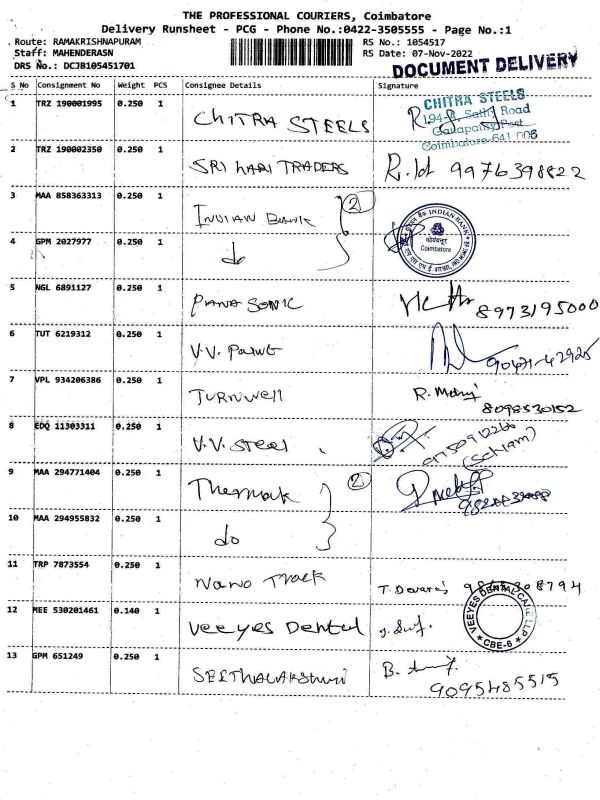 THE PROFESSIONAL COURIERS, Coimbatore
Delivery Runsheet - PCG - Phone No.:0422-3505555 - Page No.:1
Route: RAMAKRISHNAPURAM RS No.: 1054517
Staff: MAHENDERASN RS Date: 07-Nov-2022
DRS No.: DCJB105451701 DOCUMENT DELIVERY
S No Consignment No Weight PCS Consignee Details Signature
1 TRZ 190001995 0.250 1 CHITRA STEELS
CHITRA STEELS
194-B, Sathy Road
Ganapathy Post
Coimbatore-641 006
2 TRZ 190002350 0.250 1 SRI HARI TRADERS 9976398822
3 MAA 858363313 0.250 1 INDIAN BANK 2
INDIAN BANK
कोयंबतूर
Coimbatore
4 GPM 2027977 0.250 1 do
5 NGL 6891127 0.250 1 PANASONIC 8973195000
6 TUT 6219312 0.250 1 V.V. Paint 90471-42925
7 VPL 934206386 0.250 1 Turnwell R.
8098530152
8 EDQ 11303311 0.250 1 V.V. Steel
9 MAA 294771404 0.250 1 Thermak 2
10 MAA 294955832 0.250 1 do
11 TRP 7873554 0.250 1 Nano Track T. Devaraj
12 MEE 530201461 0.140 1 Veeyes Dental
VEEYES DENTAL CARE LLP
CBE-6
13 GPM 651249 0.250 1 SEETHALAKSHMI B.
9095485515